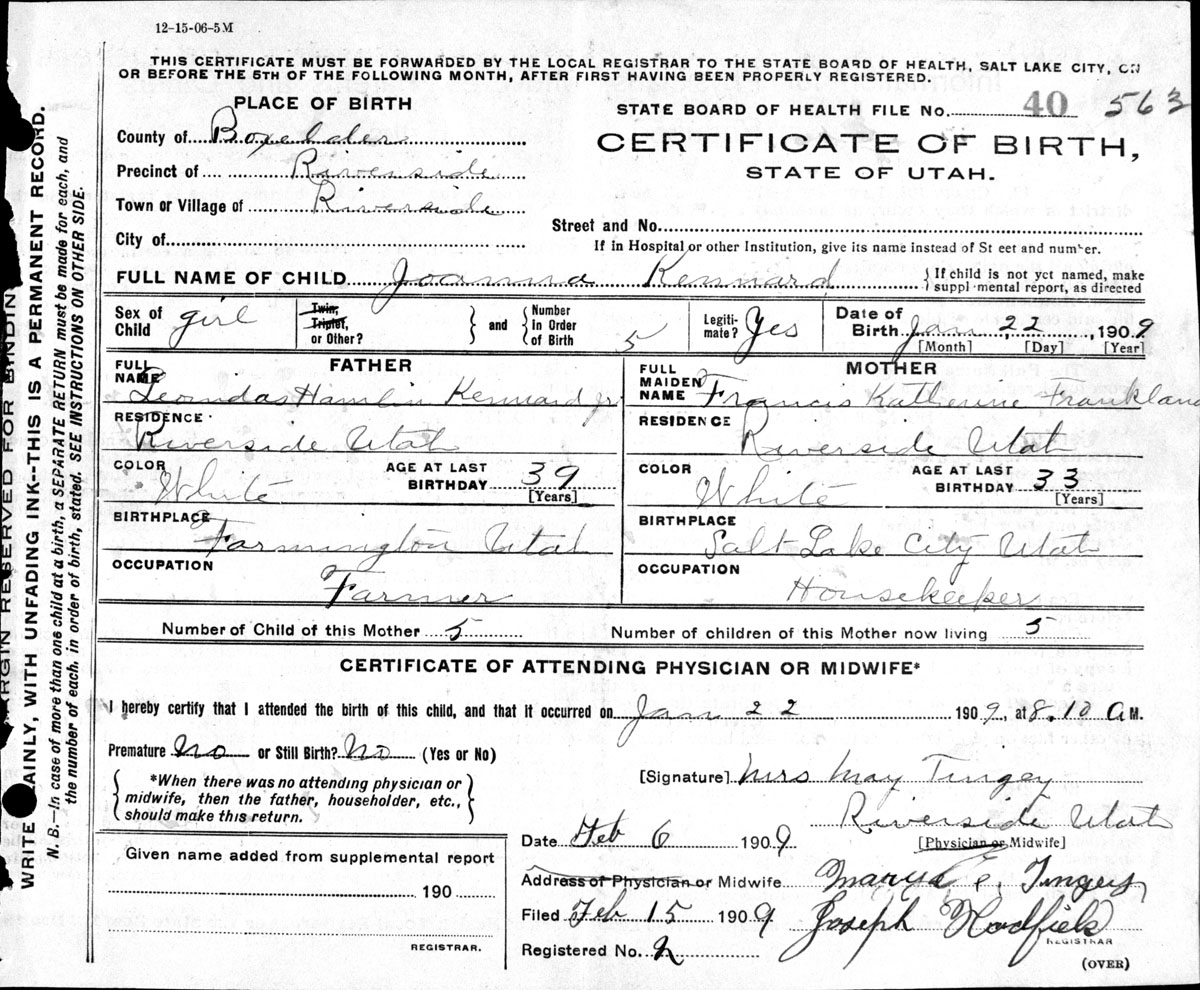 12-15-06-5M
THIS CERTIFICATE MUST BE FORWARDED BY THE LOCAL REGISTRAR TO THE STATE BOARD OF HEALTH, SALT LAKE CITY, ON
OR BEFORE THE 5TH OF THE FOLLOWING MONTH, AFTER FIRST HAVING BEEN PROPERLY REGISTERED.
PLACE OF BIRTH
STATE BOARD OF HEALTH FILE No. 40 563
County of Boxelder
CERTIFICATE OF BIRTH,
Precinct of Riverside
STATE OF UTAH.
Town or Village of Riverside
Street and No.
City of
If in Hospital or other Institution, give its name instead of St eet and number.
FULL NAME OF CHILD Joanna Kennard
If child is not yet named, make
suppl mental report, as directed
Sex of Child girl
Twin, Triplet, or Other?
and
Number In Order of Birth 5
Legitimate? Yes
Date of Birth Jan 22, 1909
[Month] [Day] [Year]
FATHER
FULL NAME Leonidas Hamlin Kennard Jr
RESIDENCE Riverside Utah
COLOR White
AGE AT LAST BIRTHDAY 39 [Years]
BIRTHPLACE Farmington Utah
OCCUPATION Farmer
MOTHER
FULL MAIDEN NAME Francis Katherine Frankland
RESIDENCE Riverside Utah
COLOR White
AGE AT LAST BIRTHDAY 33 [Years]
BIRTHPLACE Salt Lake City Utah
OCCUPATION Housekeeper
Number of Child of this Mother 5 Number of children of this Mother now living 5
CERTIFICATE OF ATTENDING PHYSICIAN OR MIDWIFE*
I hereby certify that I attended the birth of this child, and that it occurred on Jan 22 1909, at 8.10 A M.
Premature No or Still Birth? No (Yes or No)
*When there was no attending physician or
midwife, then the father, householder, etc.,
should make this return.
[Signature] Mrs May Tingey
Riverside Utah
Date Feb 6 1909 [Physician or Midwife]
Given name added from supplemental report
190
REGISTRAR.
Address of Physician or Midwife
Filed Feb 15 1909 Joseph
REGISTRAR
Registered No. 2
(OVER)
MARGIN RESERVED FOR BINDIN
WRITE AINLY, WITH UNFADING INK--THIS IS A PERMANENT RECORD.
N. B.—In case of more than one child at a birth, a SEPARATE RETURN must be made for each, and
the number of each, in order of birth, stated. SEE INSTRUCTIONS ON OTHER SIDE.